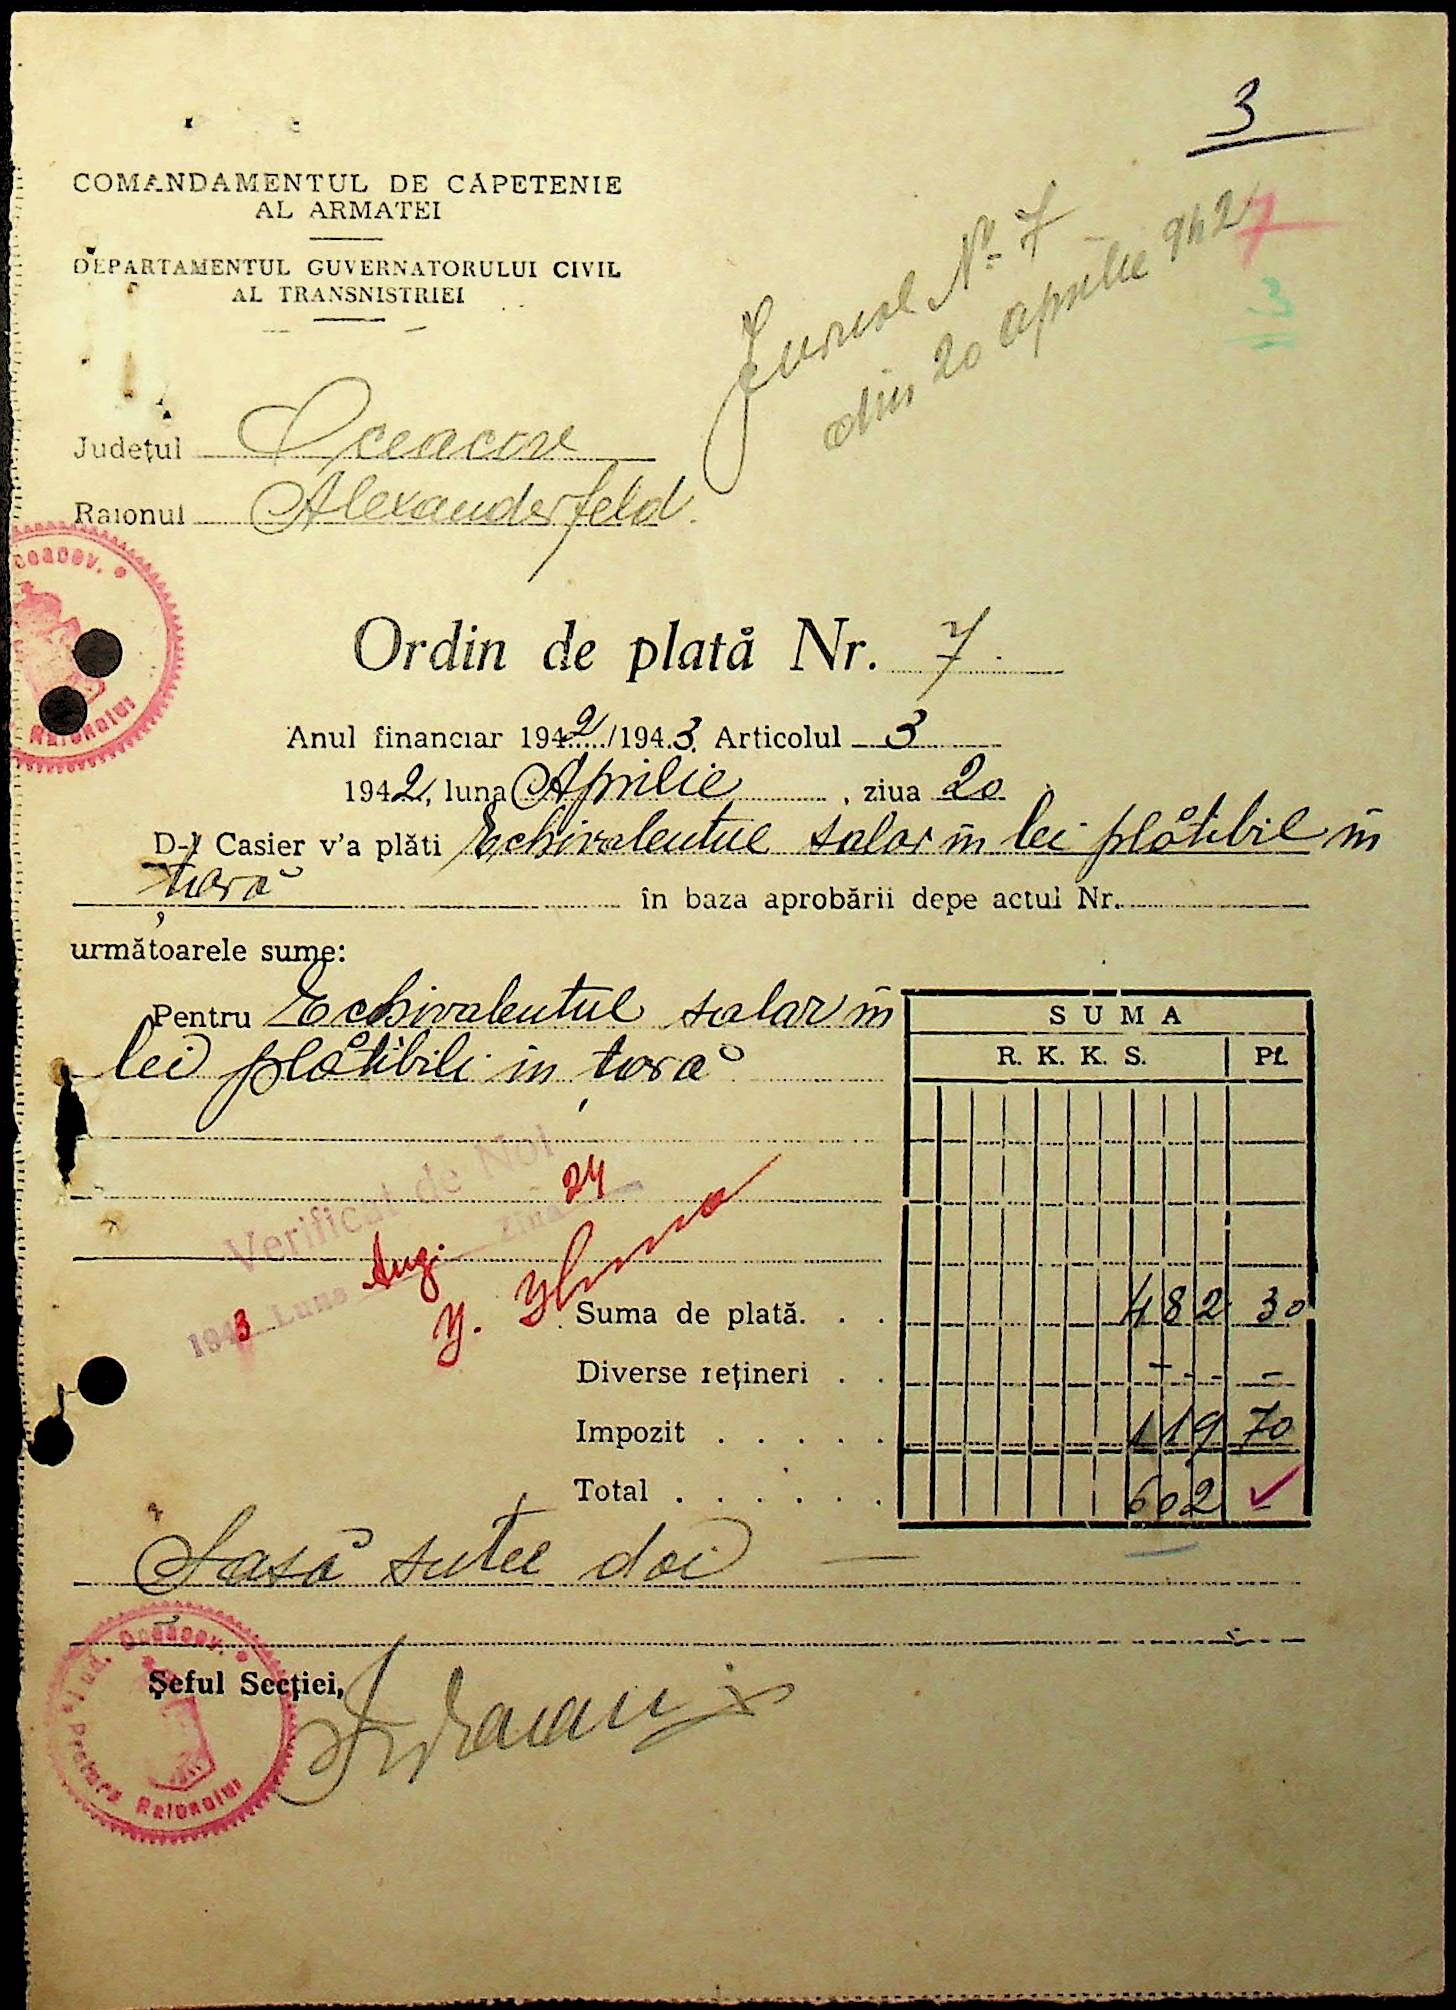 3
COMANDAMENTUL DE CAPETENIE
AL ARMATEI
DEPARTAMENTUL GUVERNATORULUI CIVIL
AL TRANSNISTRIEI
Jurnal No 7
din 20 aprilie 942
7
3
Județul Oceacov
Raionul Alexanderfeld
Ordin de plată Nr. 7
Anul financiar 1942/1943 Articolul 3
1942, luna Aprilie, ziua 20
D-l Casier v'a plăti Echivalentul salar în lei plătibil în
țară în baza aprobării depe actul Nr.
următoarele sume:
Pentru Echivalentul salar în
lei plătibili în țară
SUMA
R. K. K. S. Pf.
Verificat de Noi
1943 Luna Aug. Ziua 24
Suma de plată. . . 482 30
Diverse rețineri . . - - - -
Impozit . . . . . 119 70
Total . . . . . . 602 -
Șasă sute doi —
Șeful Secției,
Jud. Oceacov.
Pretura Raionului